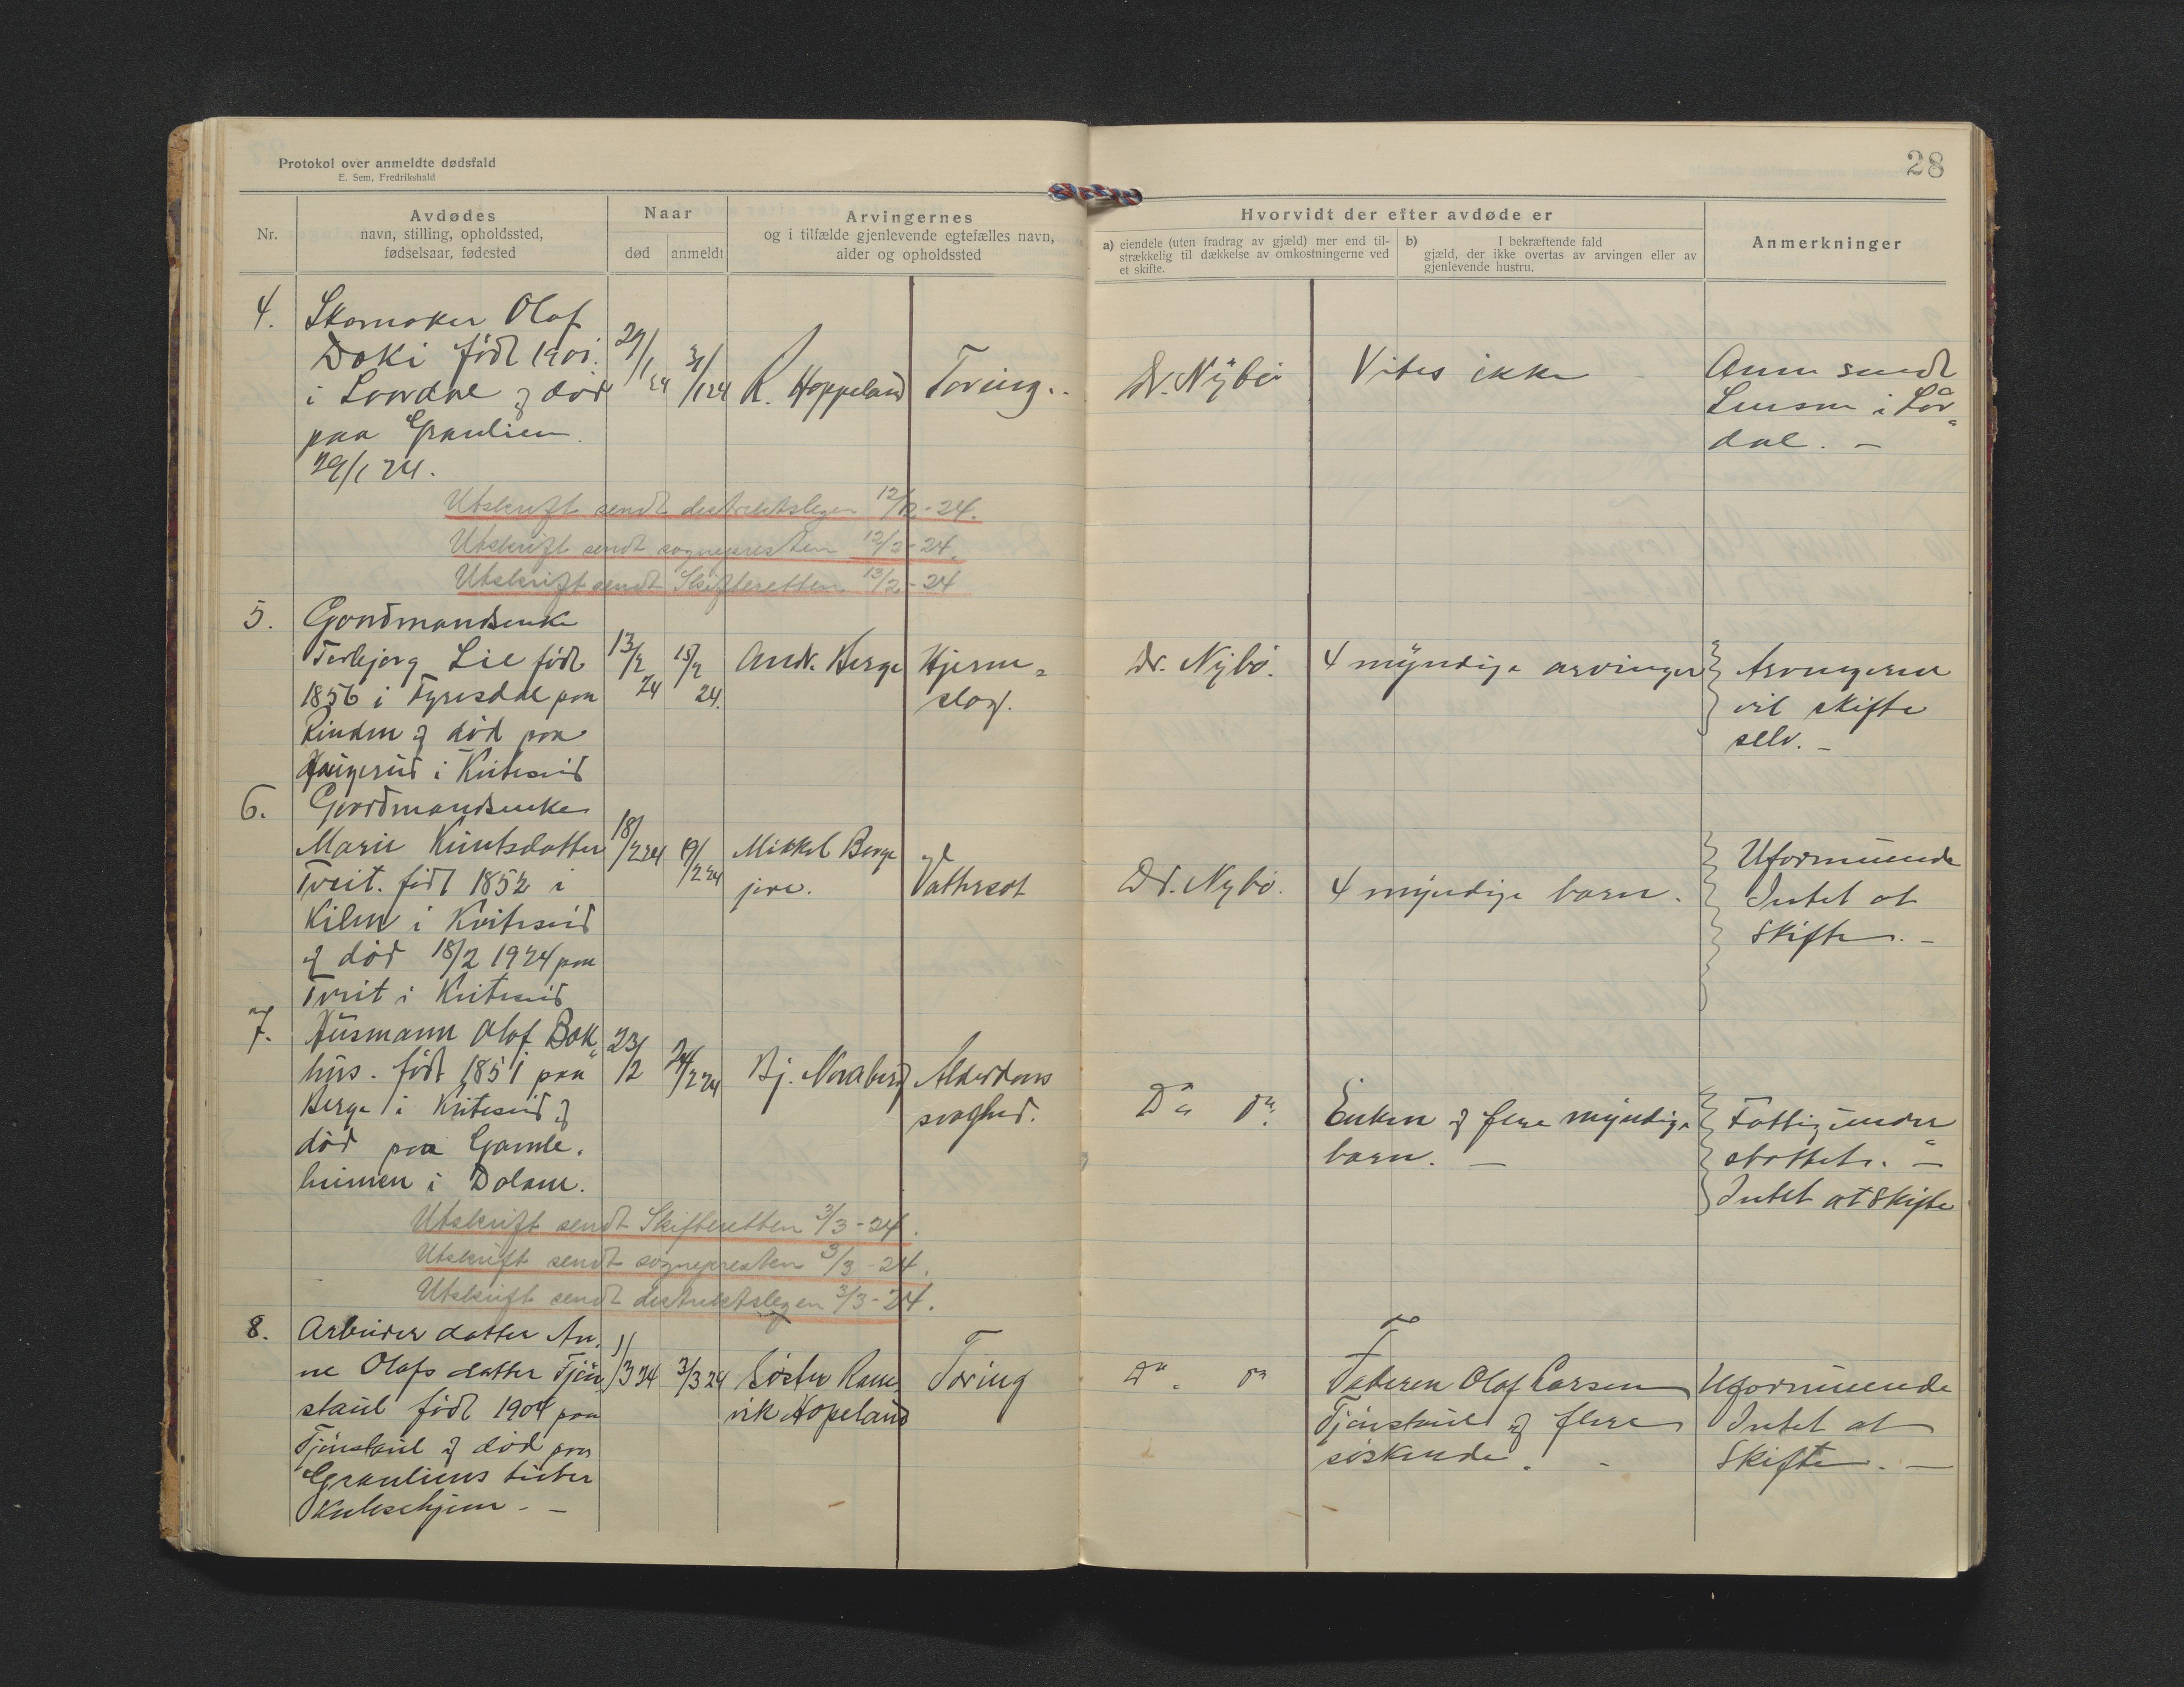 Protokol over anmeldte dødsfald
E. Sem, Fredrikshald
28
Nr.
Avdødes
navn, stilling, opholdssted,
fødselsaar, fødested
Naar
død
anmeldt
Arvingernes
og i tilfælde gjenlevende egtefælles navn,
alder og opholdssted
Hvorvidt der efter avdøde er
a) eiendele (uten fradrag av gjæld) mer end til-
strækkelig til dækkelse av omkostningerne ved
et skifte.
b) I bekræftende fald
gjæld, der ikke overtas av arvingen eller av
gjenlevende hustru.
Anmerkninger
4.
Skomaker Olaf
Doki født 1901.
i Laardal og død
paa Graulien.
29/1 24.
29/1 24
31/1 24
R. Hoppeland
Tæring.
Dr. Nybø
Vites ikke
Anm sendt
Lensm i Laar
dal. -
Utskrift sendt distriktslegen 12/2-24.
Utskrift sendt sognepresten 12/2-24.
Utskrift sendt Skifteretten 13/2-24
5.
Gaardmandsenke
Torbjørg Lie født
1856 i Tyresdal paa
Rinden og død paa
Haugerud i Kviteseid
13/2 24
15/2 24.
Andr. Berge
Hjerne-
slag.
Dr. Nybø.
4 myndige arvinger
Arvingerne
vil skifte
selv. -
6.
Gaardmandsenke
Marie Knutsdatter
Tveit. født 1852 i
Kilen i Kviteseid
og død 18/2 1924 paa
Tveit i Kviteseid
18/2 24
19/2 24
Mikkel Berge
jore.
Vattersot
Dr. Nybø.
4 myndige barn.
Uformuende
Intet at
Skifte. -
7.
Husmann Olaf Bak-
hus. født 1851 paa
Berge i Kviteseid og
død paa Gamle-
heimen i Dalane.
23/12
24/2 24
Bj. Noraberg
Alderdoms
svaghed.
Do do.
Enken og flere myndige
barn. -
Fattigunder-
støttet. -
Intet at Skifte
Utskrift sendt Skifteretten 3/3-24.
Utskrift sendt sognepresten 3/3-24.
Utskrift sendt distriktslegen 3/3-24.
8.
Arbeider datter An-
ne Olafs datter Tjøn
staul født 1904 paa
Tjønstaul og død paa
Grauliens tuber
kulosehjem. -
1/3 24
3/3 24
Søster
Hopeland
Tæring
Do. do
Faderen Olaf Larsen
Tjønstaul og flere
søskende. -
Uformuende
Intet at
Skifte. -